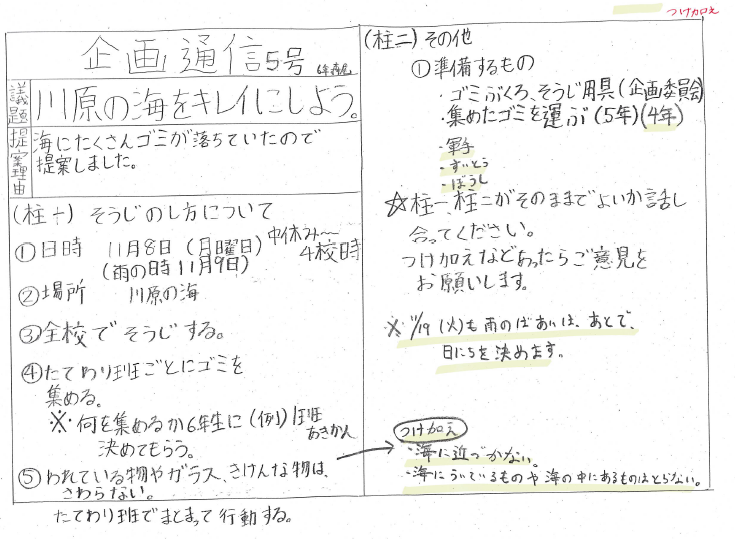 つけ加え
企画通信5号
議題
川原の海をキレイにしよう。
提案理由
海にたくさんゴミが落ちていたので
提案しました。
(柱一) そうじのし方について
①日時 11月8日(月曜日) 中休み〜
4校時
(雨の時11月9日)
②場所 川原の海
③全校でそうじする。
④たてわり班ごとにゴミを
集める。
※何を集めるか6年生に(例)1班
あきかん
決めてもらう。
⑤われている物やガラス、きけんな物は、
さわらない。
たてわり班でまとまって行動する。
(柱二) その他
①準備するもの
・ゴミぶくろ、そうじ用具(企画委員会)
・集めたゴミを運ぶ(5年)(4年)
・軍手
・すいとう
・ぼうし
☆柱一、柱二がそのままでよいか話し
合ってください。
つけ加えなどあったらご意見を
お願いします。
※11/9(火)も雨のばあいは、あとで、
日にちを決めます。
つけ加え
・海に近づかない。
・海にういているものや海の中にあるものはとらない。